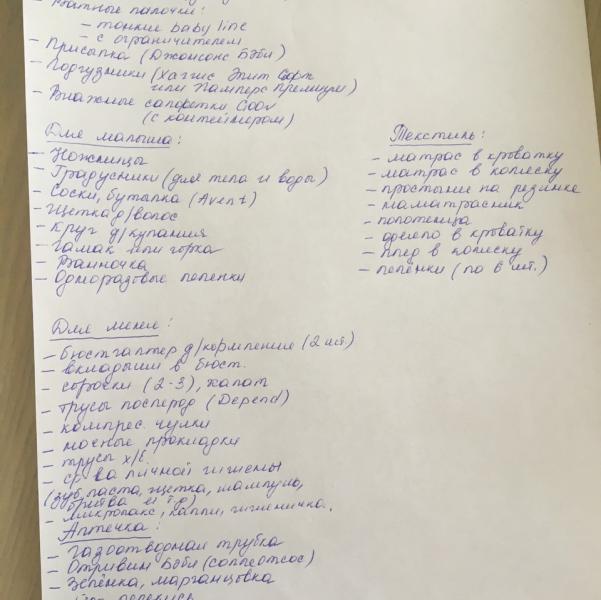 Ватные палочки:
– тонкие baby line
– с ограничителем
– Присыпка (Джонсонс Бэби)
– Подгузники (Хаггис Элит Софт
или Памперс Премиум)
– Влажные салфетки
(с контейнером)
Для малыша:
– Ножницы
– Градусники (для тела и воды)
– Соски, бутылка (Avent)
– Щетка д/волос
– Круг д/купания
– Гамак или горка
– Ванночка
– Одноразовые пеленки
Текстиль:
– матрас в кроватку
– матрас в коляску
– простыне на резинке
– наматрасник
– полотенца
– одеяло в кроватку
– плед в коляску
– пелёнки (по 6 шт.)
Для меня:
– бюстгалтер д/кормления (2 шт.)
– вкладыши в бюст.
– сорочки (2-3), халат
– трусы послерод (Depend)
– компрес. чулки
– носные прокладки
– трусы х/б.
– ср-ва личной гигиены
(зуб. паста, щетка, шампунь,
бритва и т.д)
– Микролакс, капли, гигиеничка.
Аптечка:
– Газоотводная трубка
– Отривин Бэби (соплеотсос)
– Зелёнка, марганцовка
перекись